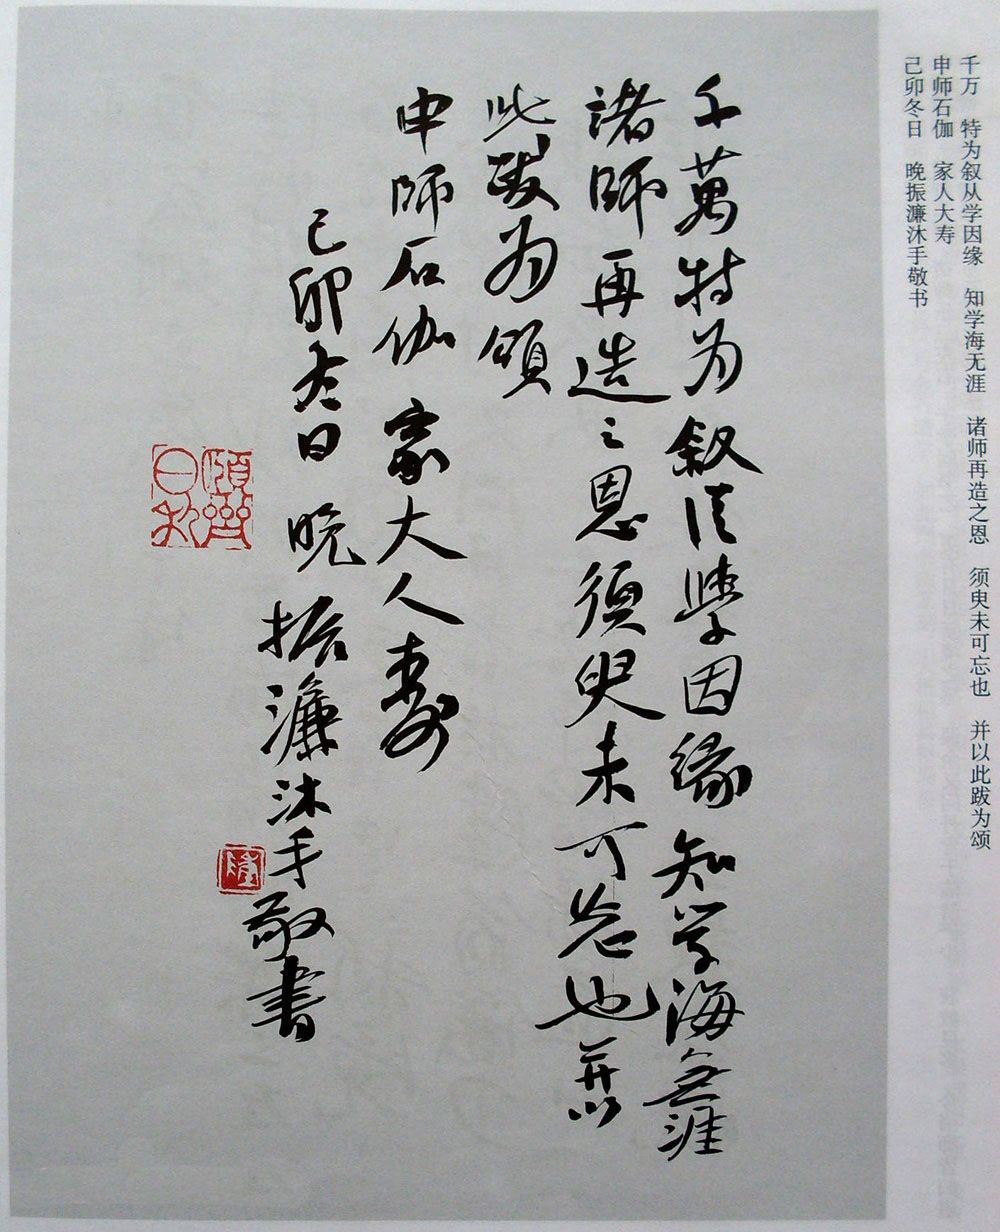 千万　特为叙从学因缘　知学海无涯　诸师再造之恩　须臾未可忘也　并以此跋为颂
申师石伽　家人大寿
己卯冬日　晚振濂沐手敬书
千萬特为叙從學因缘知学海無涯
諸師再造之恩須臾未可忘也并以
此跋为頌
申師石伽家大人壽
己卯冬日晚振濂沐手敬書